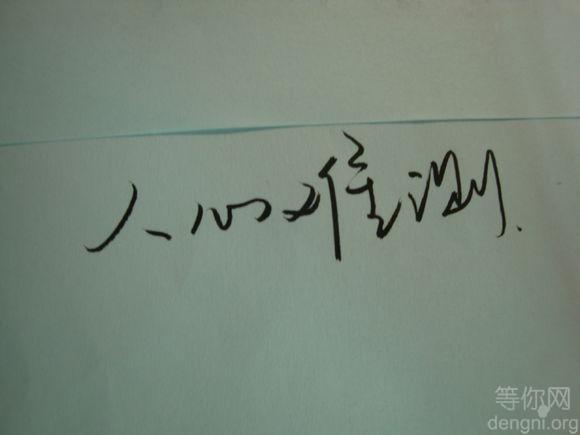 人心难测.
等你网
dengni.org